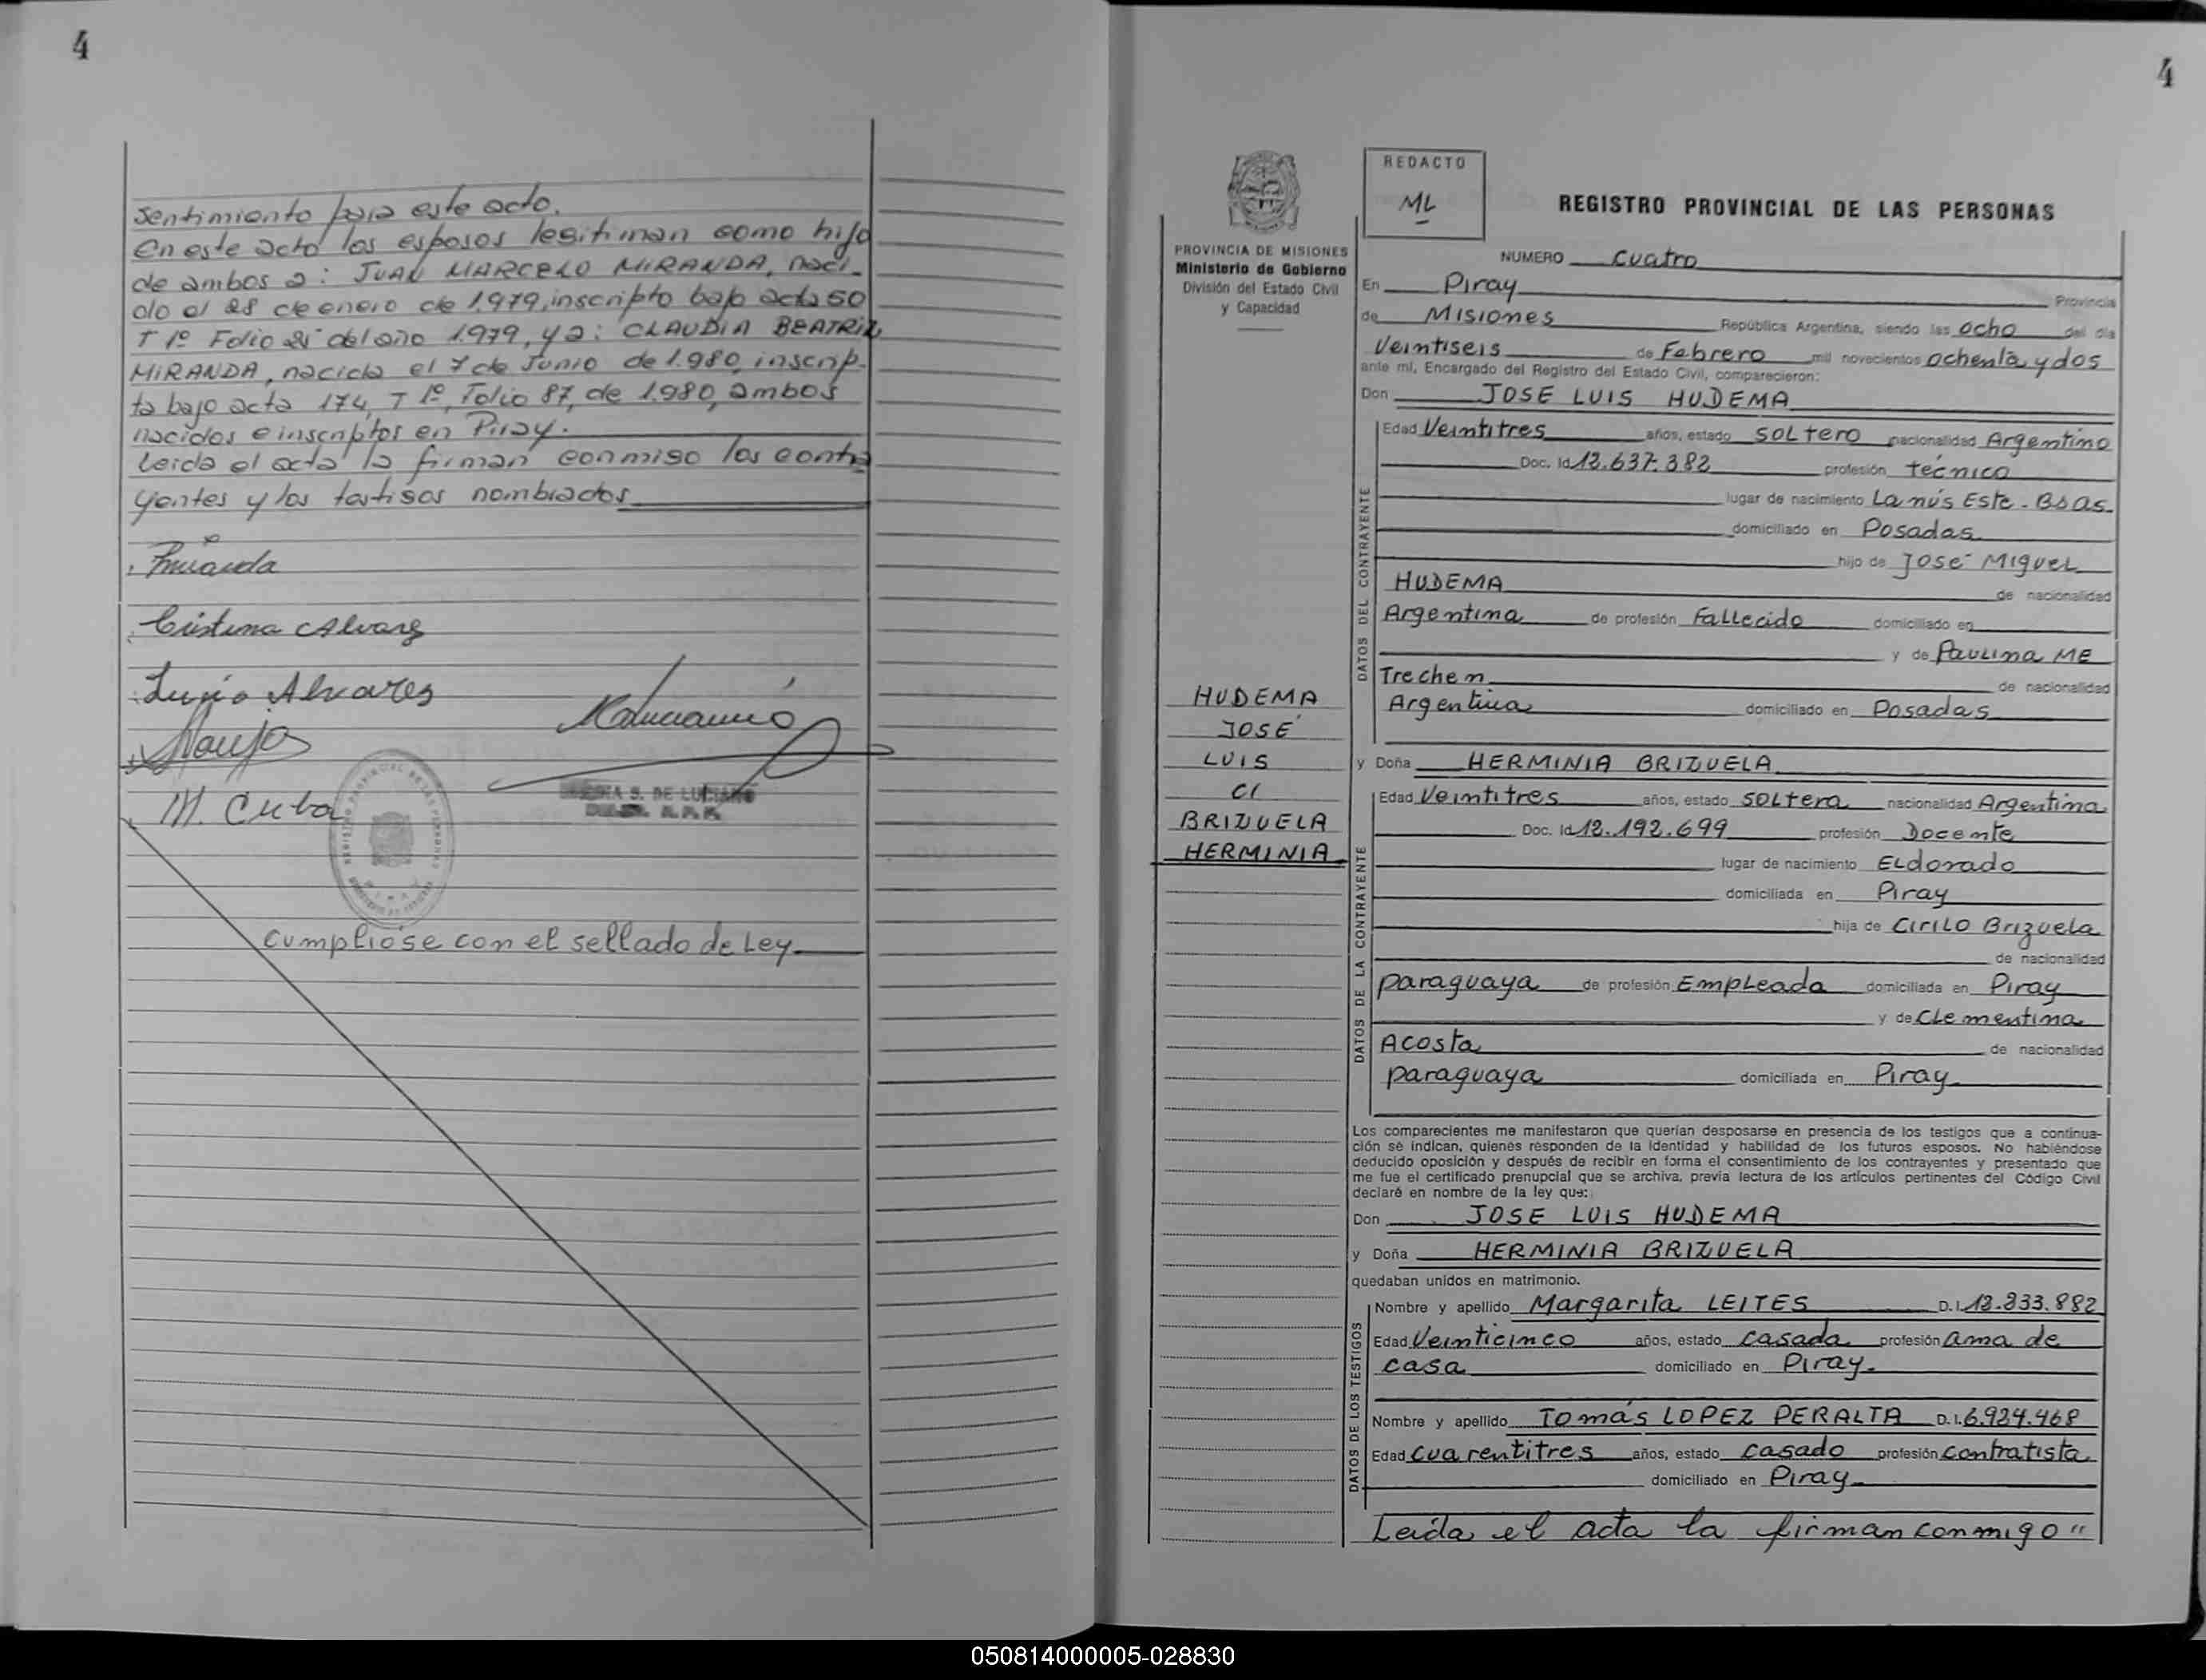 4
sentimiento para este acto.
En este acto los esposos legitiman como hijo
de ambos a: JUAN MARCELO MIRANDA, naci-
do el 28 de enero de 1.979, inscripto bajo acta 50
T 1º Folio 25 del año 1.979, y a: CLAUDIA BEATRIZ
MIRANDA, nacida el 7 de Junio de 1.980, inscrip-
ta bajo acta 174, T 1º, Folio 87, de 1.980, ambos
nacidos e inscriptos en Piray.
Leida el acta la firman conmigo los contra
yentes y los testigos nombrados
Miranda
Cristina Alvarez
Alvares
M. Cuba
S. DE LUCIANO
Cumpliose con el sellado de Ley
4
REDACTO
ML
REGISTRO PROVINCIAL DE LAS PERSONAS
PROVINCIA DE MISIONES
Ministerio de Gobierno
División del Estado Civil
y Capacidad
NUMERO cuatro
En Piray Provincia
de Misiones República Argentina, siendo las ocho del día
Veintiseis de Febrero mil novecientos ochenta y dos
ante mí, Encargado del Registro del Estado Civil, comparecieron:
Don JOSE LUIS HUDEMA
DATOS DEL CONTRAYENTE
Edad Veintitres años, estado SOLTERO nacionalidad Argentino
Doc. Id 12.637.382 profesión técnico
lugar de nacimiento Lanús Este - Bs As.
domiciliado en Posadas
hijo de José Miguel
HUDEMA de nacionalidad
Argentina de profesión Fallecido domiciliado en
y de Paulina ME
Trechen de nacionalidad
Argentina domiciliado en Posadas
HUDEMA
JOSÉ
LUIS
C/
BRIZUELA
HERMINIA
y Doña HERMINIA BRIZUELA
DATOS DE LA CONTRAYENTE
Edad Veintitres años, estado SOLTERA nacionalidad Argentina
Doc. Id 12.192.699 profesión Docente
lugar de nacimiento ELdorado
domiciliada en Piray
hija de CIRILO Brizuela
de nacionalidad
paraguaya de profesión Empleada domiciliada en Piray
y de Clementina
Acosta de nacionalidad
paraguaya domiciliada en Piray
Los comparecientes me manifestaron que querían desposarse en presencia de los testigos que a continua-
ción se indican, quienes responden de la identidad y habilidad de los futuros esposos. No habiéndose
deducido oposición y después de recibir en forma el consentimiento de los contrayentes y presentado que
me fue el certificado prenupcial que se archiva, previa lectura de los artículos pertinentes del Código Civil
declaré en nombre de la ley que:
Don JOSE LUIS HUDEMA
y Doña HERMINIA BRIZUELA
quedaban unidos en matrimonio.
DATOS DE LOS TESTIGOS
Nombre y apellido Margarita LEITES D.I. 12.833.882
Edad Veinticinco años, estado casada profesión ama de
casa domiciliado en Piray.
Nombre y apellido Tomás LOPEZ PERALTA D.I. 6.924.468
Edad cuarentitres años, estado casado profesión contratista
domiciliado en Piray
Leída el acta la firman conmigo "
050814000005-028830